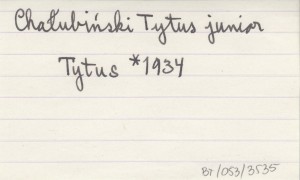 Chałubiński Tytus junior
Tytus *1934
BT/053/3535